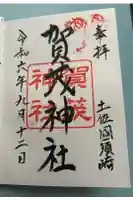 奉拝
土佐國須崎
賀茂神社
令和六年九月十二日